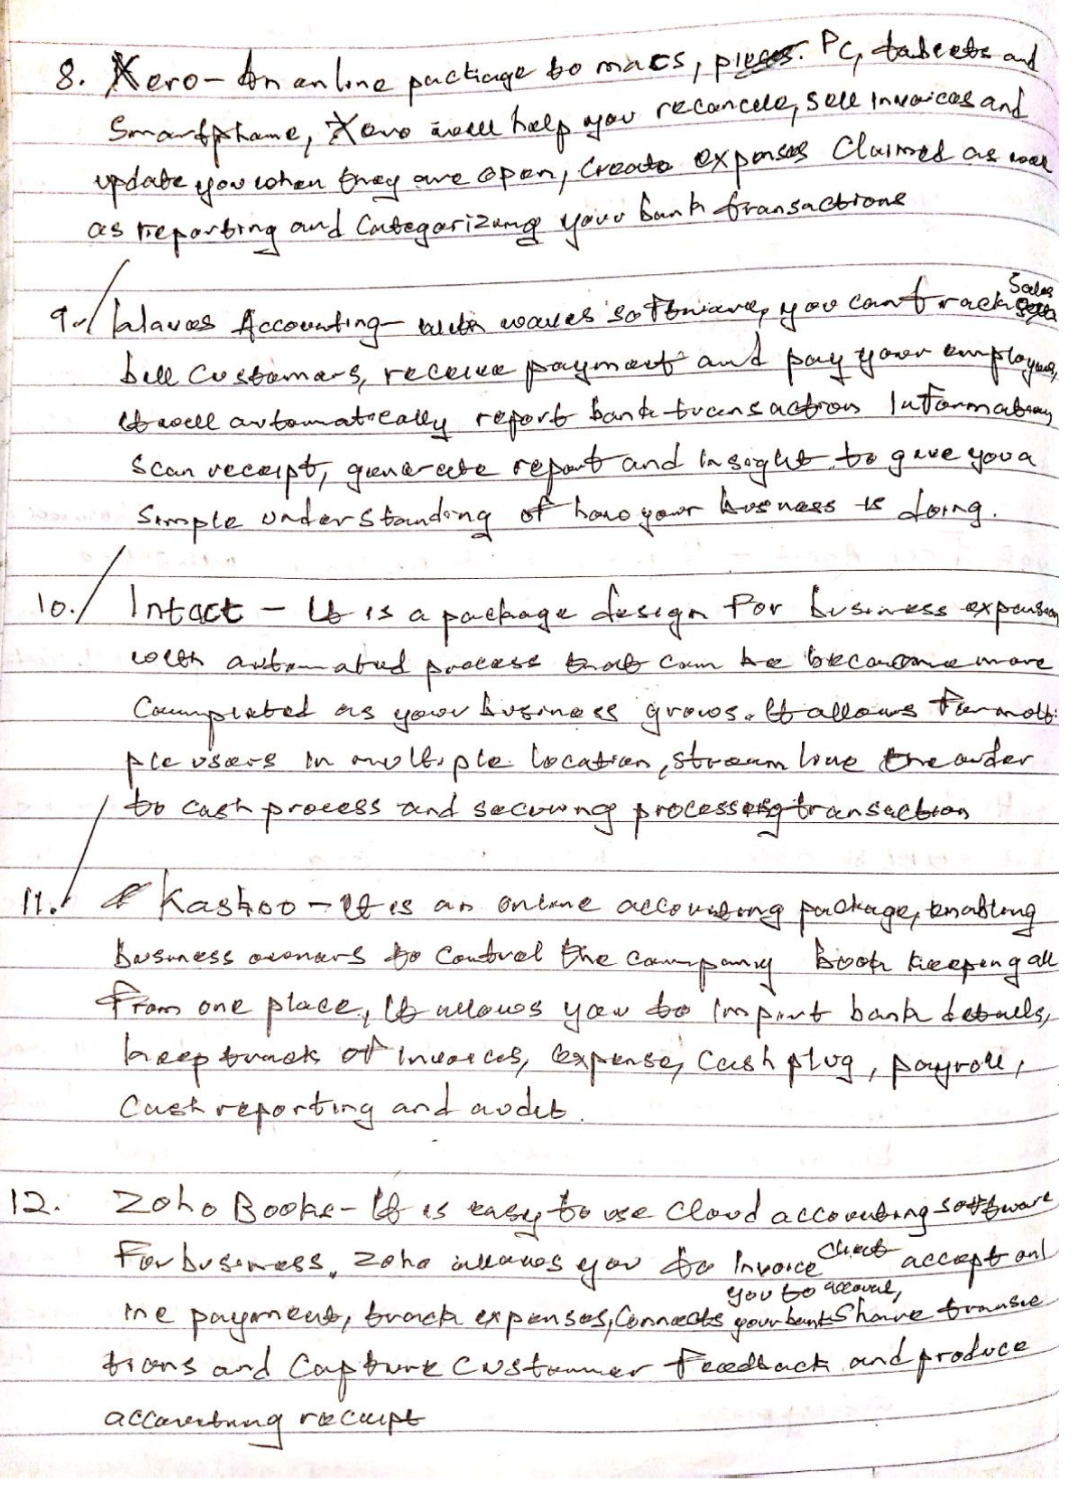 8. Xero - An online package to macs, pieces. PC, tablets and
Smartphone, Xero will help you reconcile, sell invoices and
update you when they are open, Create expenses Claimed as well
as reporting and Categorizing your bank transactions
9. Waves Accounting - with waves software, you can track Sales
bill Customers, receive payment and pay your employees,
It will automatically report bank transaction Information,
Scan receipt, generate report and insight to give you a
Simple understanding of how your business is doing.
10. Intact - It is a package design For business expansion
with automated process that can be become more
Completed as your business grows. It allows For multi
ple users in multiple location, stream line the order
to cash process and securing processing transaction
11. Kashoo - It is an online accounting package, enabling
business owners to Control the company book keeping all
From one place, It allows you to import bank details,
keep track of invoices, expense, Cash plug, payroll,
Cash reporting and audit.
12. Zoho Books - It is easy to use Cloud accounting software
For business. Zoho allows you to Invoice Client accept onl
ine payment, track expenses, Connects your bank you to account, Share transac
tions and Capture Customer Feedback and produce
accounting receipt